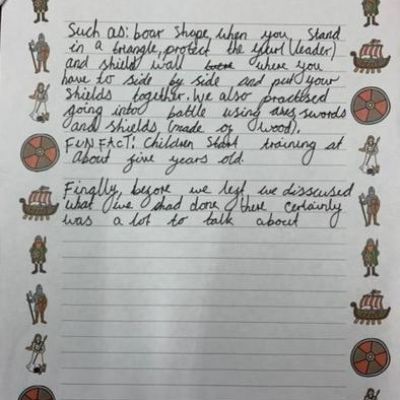 Such as: boar shape, when you stand
in a triangle, protect the yarl (leader)
and shield wall where you
have to side by side and put your
shields together. We also practised
going into battle using axes swords
and shields, (made of wood).
FUN FACT: Children start training at
about five years old.
Finally, before we left we disscused
what we had done there certainly
was a lot to talk about